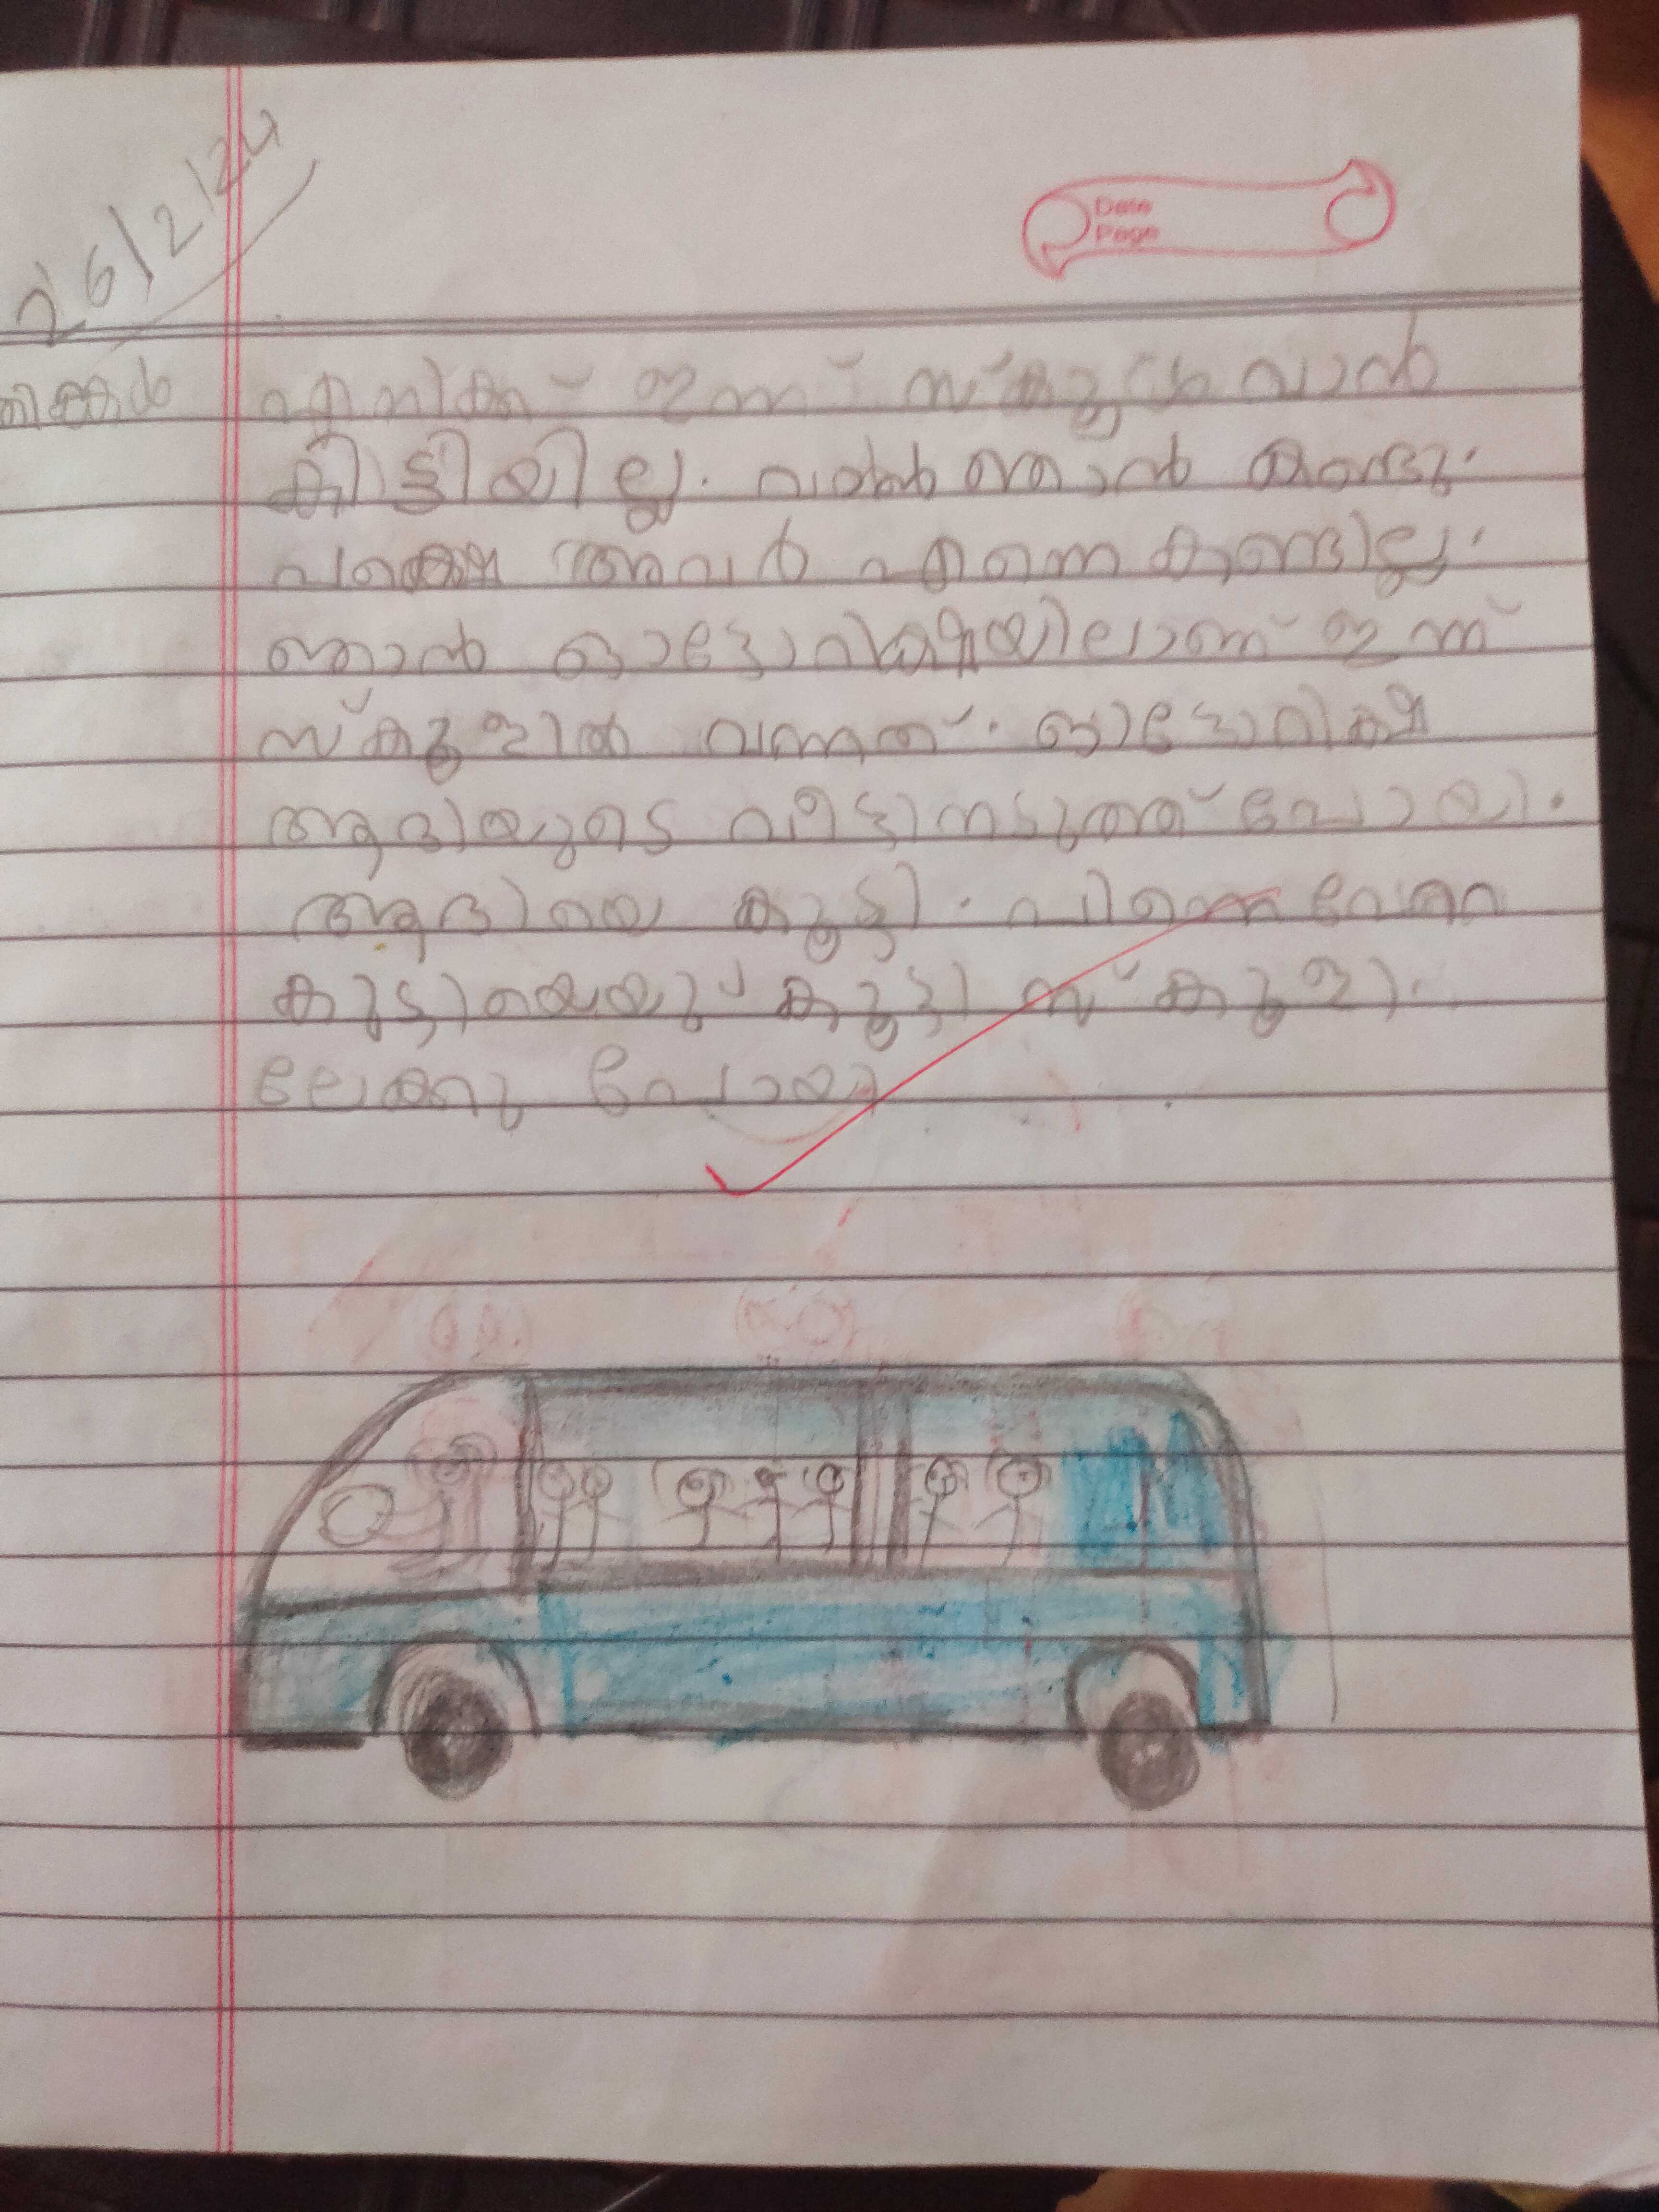 26/2/24
Date
Page
തിങ്കൾ എനിക്ക് ഇന്ന് സ്കൂൾ വാൻ
കിട്ടിയില്ല. വാൻ ഞാൻ കണ്ടു.
പക്ഷെ അവർ എന്നെ കണ്ടില്ല.
ഞാൻ ഓട്ടോറിക്ഷയിലാണ് ഇന്ന്
സ്കൂളിൽ വന്നത്. ഓട്ടോറിക്ഷ
ആദിയുടെ വീട്ടിനടുത്ത് പോയി.
ആദിയെ കൂട്ടി. പിന്നെ വേറെ
കുട്ടിയെയും കൂട്ടി സ്കൂളി.
ലേക്കു പോയി